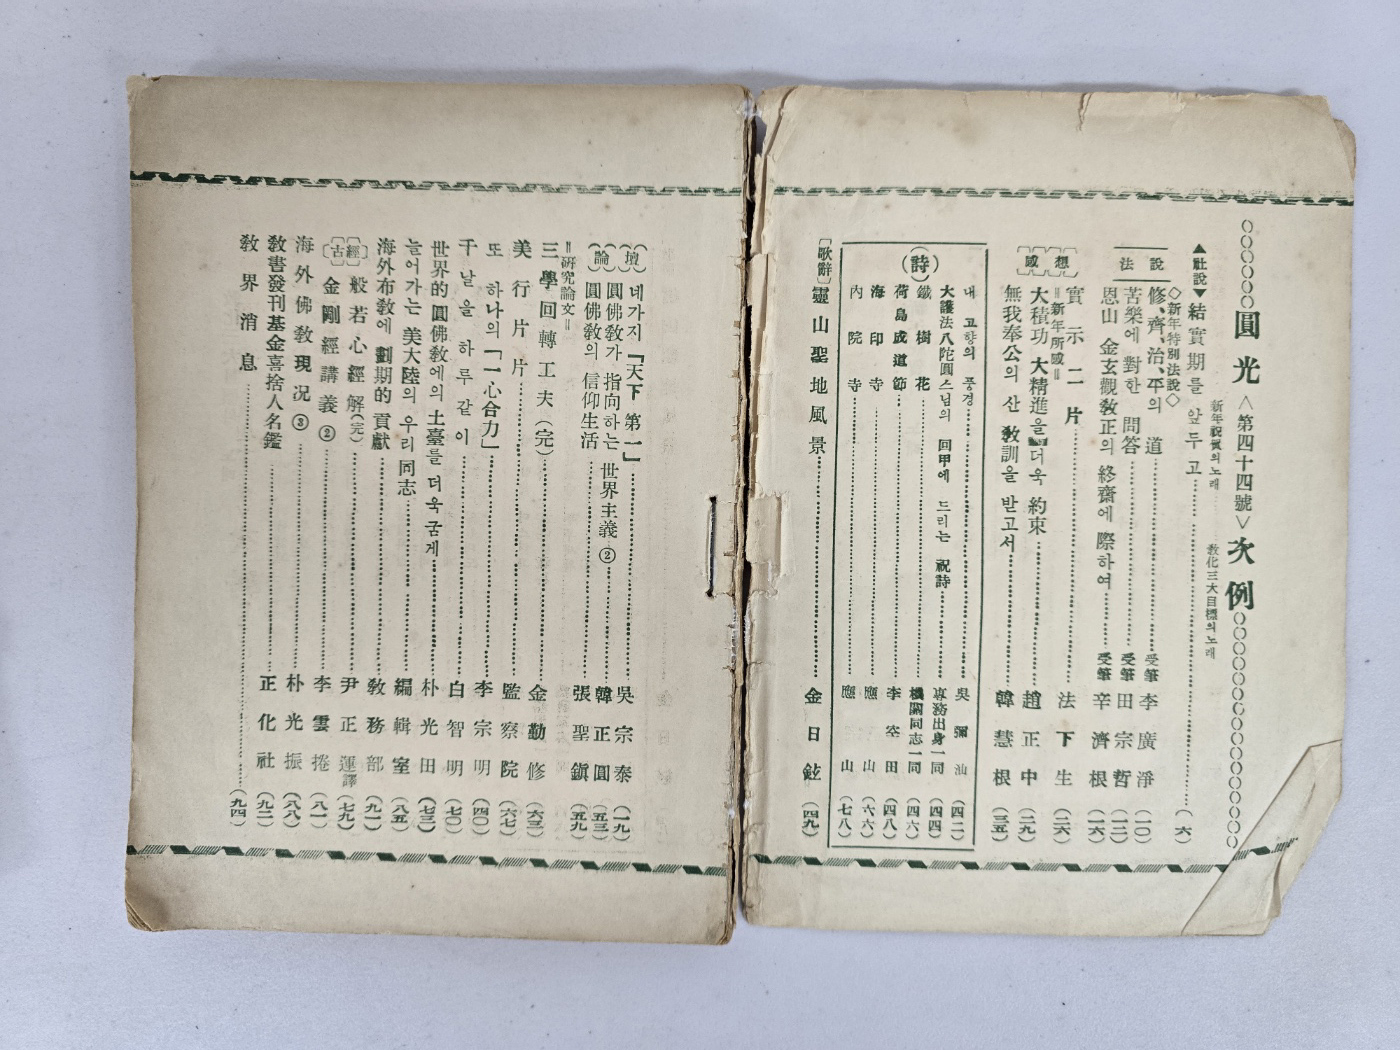 圓光 <第四十四號> 次例
新年祝賀의 노래 敎化三大目標의 노래
▲社說▼ 結實期를 앞두고 (六)
◇新年特別法說◇
法說
修、齊、治、平의 道 受筆 李廣淨 (一〇)
苦樂에 對한 問答 受筆 田宗哲 (一二)
恩山 金玄觀敎正의 終齋에 際하여 受筆 辛濟根 (一六)
感想
實示二片 法下生 (二六)
=新年所感=
大積功 大精進을 더욱 約束 趙正中 (二九)
無我奉公의 산 敎訓을 받고서 韓慧根 (三五)
(詩)
내 고향의 풍경 吳彌汕 (四二)
大護法八陀圓스님의 回甲에 드리는 祝詩 專務出身一同 (四四)
鐵樹花 機關同志一同 (四六)
荷島成道節 李空田 (四八)
海印寺 應山 (六六)
內院寺 應山 (七八)
[歌辭] 靈山聖地風景 金日鉉 (四九)
(論壇)
네가지 「天下 第一」 吳宗泰 (一九)
圓佛敎가 指向하는 世界主義 ② 韓正圓 (五三)
圓佛敎의 信仰生活 張聖鎭 (五九)
=硏究論文=
三學回轉工夫(完) 金勤修 (六三)
美行片片 監察院 (六七)
또 하나의 「一心合力」 李宗明 (四〇)
千날을 하루같이 白智明 (七〇)
世界的 圓佛敎에의 土臺를 더욱 굳게 朴光田 (七三)
늘어가는 美大陸의 우리 同志 編輯室 (八五)
海外布敎에 劃期的 貢獻 敎務部 (九一)
[古經]
般若心經解(完) 尹正運譯 (七九)
金剛經講義 ② 李雲捲 (八一)
海外佛敎現況 ③ 朴光振 (八八)
敎書發刊基金喜捨人名鑑 正化社 (九二)
敎界消息 (九四)